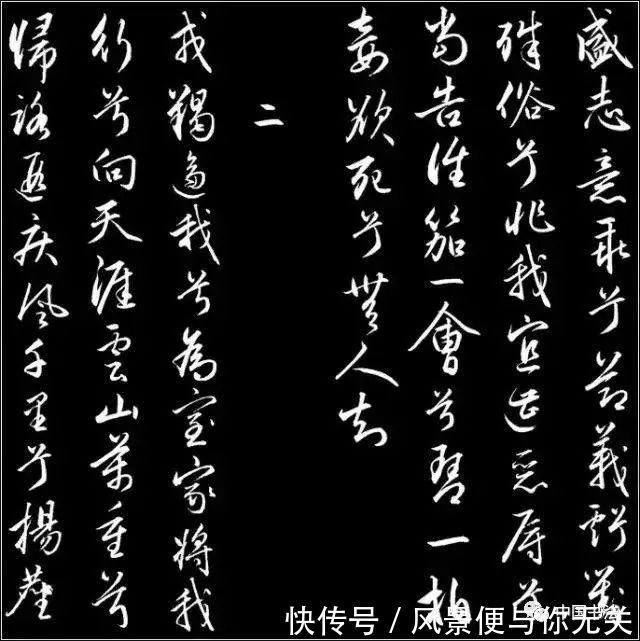 盛志意乖兮節義虧對
殊俗兮非我宜遭惡辱兮
當告誰笳一會兮琴一拍
妾欲死兮無人知
二
戎羯逼我兮為室家將我
行兮向天涯雲山萬重兮
歸路遐疾風千里兮揚塵
中国书法
快传号 / 风景便与你无关